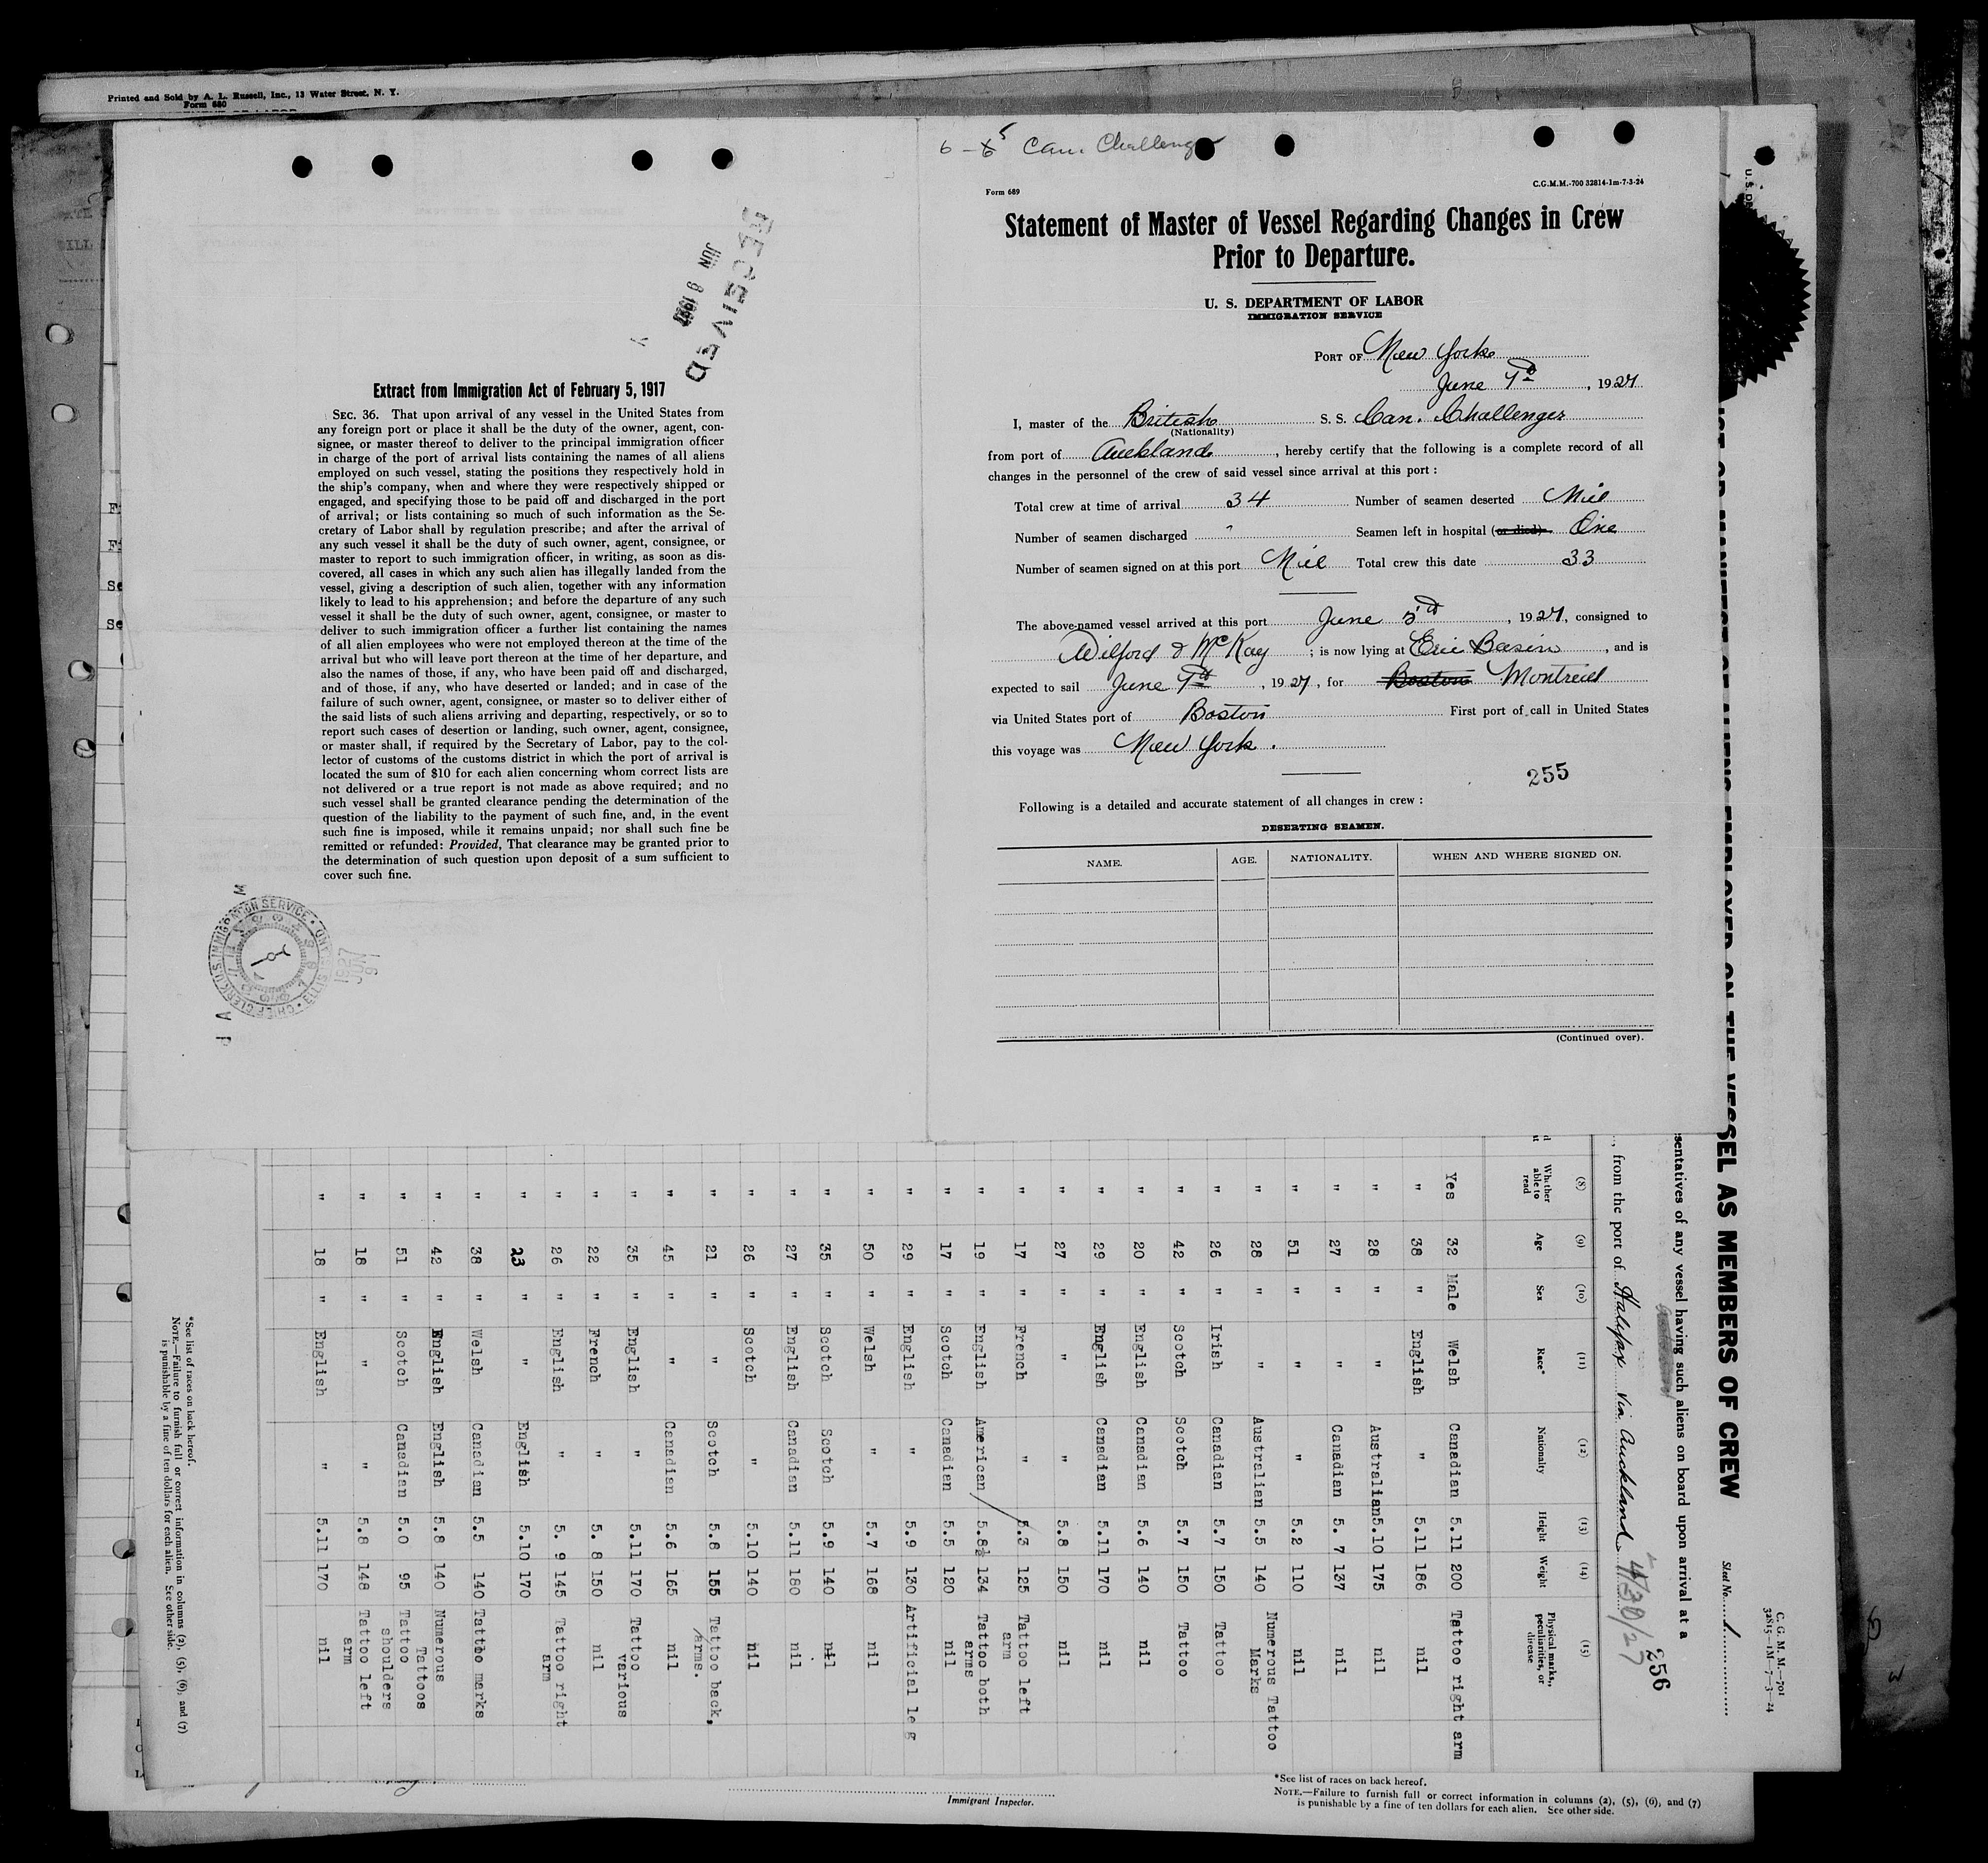 Printed and Sold by A. L. Russell, Inc., 13 Water Street, N. Y.
Form 680
RECEIVED
JUN 9 1927
Extract from Immigration Act of February 5, 1917
SEC. 36. That upon arrival of any vessel in the United States from
any foreign port or place it shall be the duty of the owner, agent, con-
signee, or master thereof to deliver to the principal immigration officer
in charge of the port of arrival lists containing the names of all aliens
employed on such vessel, stating the positions they respectively hold in
the ship's company, when and where they were respectively shipped or
engaged, and specifying those to be paid off and discharged in the port
of arrival; or lists containing so much of such information as the Se-
cretary of Labor shall by regulation prescribe; and after the arrival of
any such vessel it shall be the duty of such owner, agent, consignee, or
master to report to such immigration officer, in writing, as soon as dis-
covered, all cases in which any such alien has illegally landed from the
vessel, giving a description of such alien, together with any information
likely to lead to his apprehension; and before the departure of any such
vessel it shall be the duty of such owner, agent, consignee, or master to
deliver to such immigration officer a further list containing the names
of all alien employees who were not employed thereon at the time of the
arrival but who will leave port thereon at the time of her departure, and
also the names of those, if any, who have been paid off and discharged,
and of those, if any, who have deserted or landed; and in case of the
failure of such owner, agent, consignee, or master so to deliver either of
the said lists of such aliens arriving and departing, respectively, or so to
report such cases of desertion or landing, such owner, agent, consignee,
or master shall, if required by the Secretary of Labor, pay to the col-
lector of customs of the customs district in which the port of arrival is
located the sum of $10 for each alien concerning whom correct lists are
not delivered or a true report is not made as above required; and no
such vessel shall be granted clearance pending the determination of the
question of the liability to the payment of such fine, and, in the event
such fine is imposed, while it remains unpaid; nor shall such fine be
remitted or refunded: Provided, That clearance may be granted prior to
the determination of such question upon deposit of a sum sufficient to
cover such fine.
CHIEF CLERK U.S. IMMIGRATION SERVICE
1927
JUN 9
6 - 5 Can. Challenger
Form 689
C.G.M.M.-700 32814-1m-7-3-24
Statement of Master of Vessel Regarding Changes in Crew
Prior to Departure.
U. S. DEPARTMENT OF LABOR
IMMIGRATION SERVICE
PORT OF New York
June 7th, 1927
I, master of the British S. S. Can. Challenger
(Nationality)
from port of Auckland, hereby certify that the following is a complete record of all
changes in the personnel of the crew of said vessel since arrival at this port :
Total crew at time of arrival 34 Number of seamen deserted Nil
Number of seamen discharged " Seamen left in hospital (or died) One
Number of seamen signed on at this port Nil Total crew this date 33
The above-named vessel arrived at this port June 5th, 1927, consigned to
Wilford & McKay ; is now lying at Erie Basin, and is
expected to sail June 7th, 1927, for Boston Montreal
via United States port of Boston First port of call in United States
this voyage was New York.
255
Following is a detailed and accurate statement of all changes in crew :
DESERTING SEAMEN.
NAME. AGE. NATIONALITY. WHEN AND WHERE SIGNED ON.
(Continued over).
C. G. M. M.—701
32815—1M—7—3—24
Sheet No. 1
LIST OR MANIFEST OF ALIENS EMPLOYED ON THE VESSEL AS MEMBERS OF CREW
256
sentatives of any vessel having such aliens on board upon arrival at a
, from the port of Halifax via Auckland 4/30/27
(8) (9) (10) (11) (12) (13) (14) (15)
Whether able to read Age Sex Race* Nationality Height Weight Physical marks, peculiarities, or disease
Yes 32 Male Welsh Canadian 5.11 200 Tattoo right arm
" 38 " English " 5.11 186 nil
" 28 " " Australian 5.10 175 nil
" 27 " " Canadian 5. 7 137 nil
" 51 " " " 5.2 110 nil
" 28 " " Australian 5.5 140 Numerous Tattoo Marks
" 26 " Irish Canadian 5.7 150 Tattoo
" 42 " Scotch Scotch 5.7 150 Tattoo
" 20 " English Canadian 5.6 140 nil
" 29 " English Canadian 5.11 170 nil
" 27 " " " 5.8 150 nil
" 17 " French " 5.3 125 Tattoo left arm
" 19 " English American 5.8½ 134 Tattoo both arms
" 17 " Scotch Canadian 5.5 120 nil
" 29 " English " 5.9 130 Artificial leg
" 50 " Welsh " 5.7 168 nil
" 35 " Scotch Scotch 5.9 140 nil
" 27 " English Canadian 5.11 180 nil
" 26 " Scotch " 5.10 140 nil
" 21 " " Scotch 5.8 155 Tattoo back, arms.
" 45 " " Canadian 5.6 165 nil
" 35 " English " 5.11 170 Tattoo various
" 22 " French " 5. 8 150 nil
" 26 " English " 5. 9 145 Tattoo right arm
" 23 " " English 5.10 170
" 38 " Welsh Canadian 5.5 140 Tattoo marks
" 42 " English English 5.8 140 Numerous Tattoos
" 51 " Scotch Canadian 5.0 95 Tattoo shoulders
" 18 " " " 5.8 148 Tattoo left arm
" 18 " English " 5.11 170 nil
*See list of races on back hereof.
NOTE.—Failure to furnish full or correct information in columns (2), (5), (6), and (7)
is punishable by a fine of ten dollars for each alien. See other side.
Immigrant Inspector.
*See list of races on back hereof.
NOTE.—Failure to furnish full or correct information in columns (2), (5), (6), and (7)
is punishable by a fine of ten dollars for each alien. See other side.